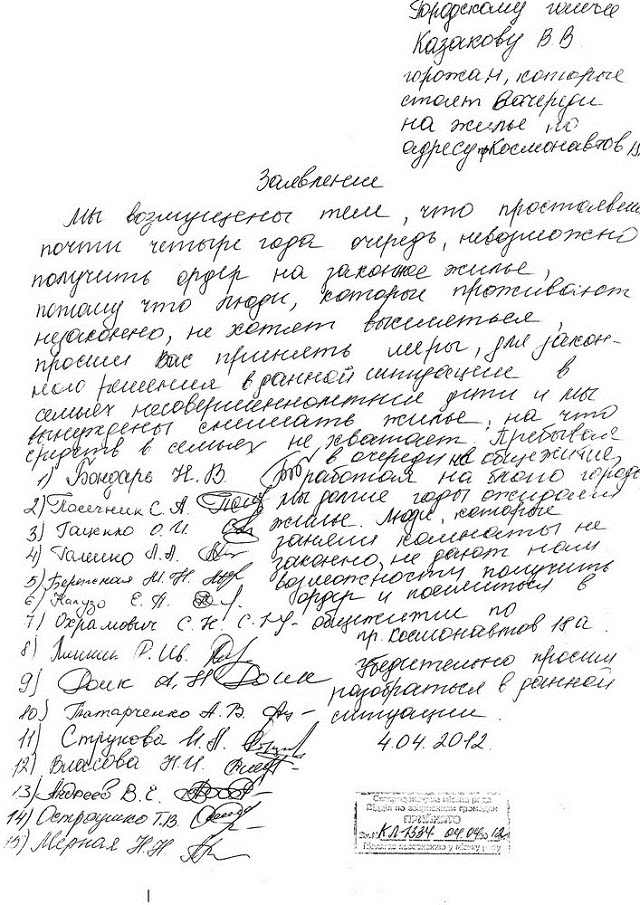 Городскому голове
Казакову В.В
горожан, которые
стоят в очереди
на жилье по
адресу пр Космонавтов
Заявление
Мы возмущены тем, что простоявши
почти четыре года очередь, невозможно
получить ордер на законное жилье,
потому что люди, которые проживают
незаконно, не хотят выселяться,
просим вас принять меры, для закон-
ного решения в данной ситуации в
семьях несовершеннолетние дети и мы
вынуждены снимать жилье, на что
средств в семьях не хватает. Пребывая
в очереди на общежитие,
1) Бондарь Н. В. работая на благо города
2) С. А. мы долгие годы ожидали
3) Гаценко О. И. жилье. Люди, которые
4) А. А. заняли комнаты не
законно, не дают нам
5) М. Н. возможности получить
6) Е. А. ордер и поселиться в
7) Охрамович С. Н. общежитии по
пр. Космонавтов 18а.
8) Р. Ив.
Убедительно просим
9) А. Н разобраться в данной
10) Татарченко А. В. ситуации.
11) Струкова И. А. 4.04.2012.
12) Власова Н. И.
13) Андреев В. Е.
14) Остроушко Т. В.
15) Мерная Н. Н.
міська рада
Відділ по зверненням громадян
ПРИЙНЯТО
КЛ-1334 04.04.12